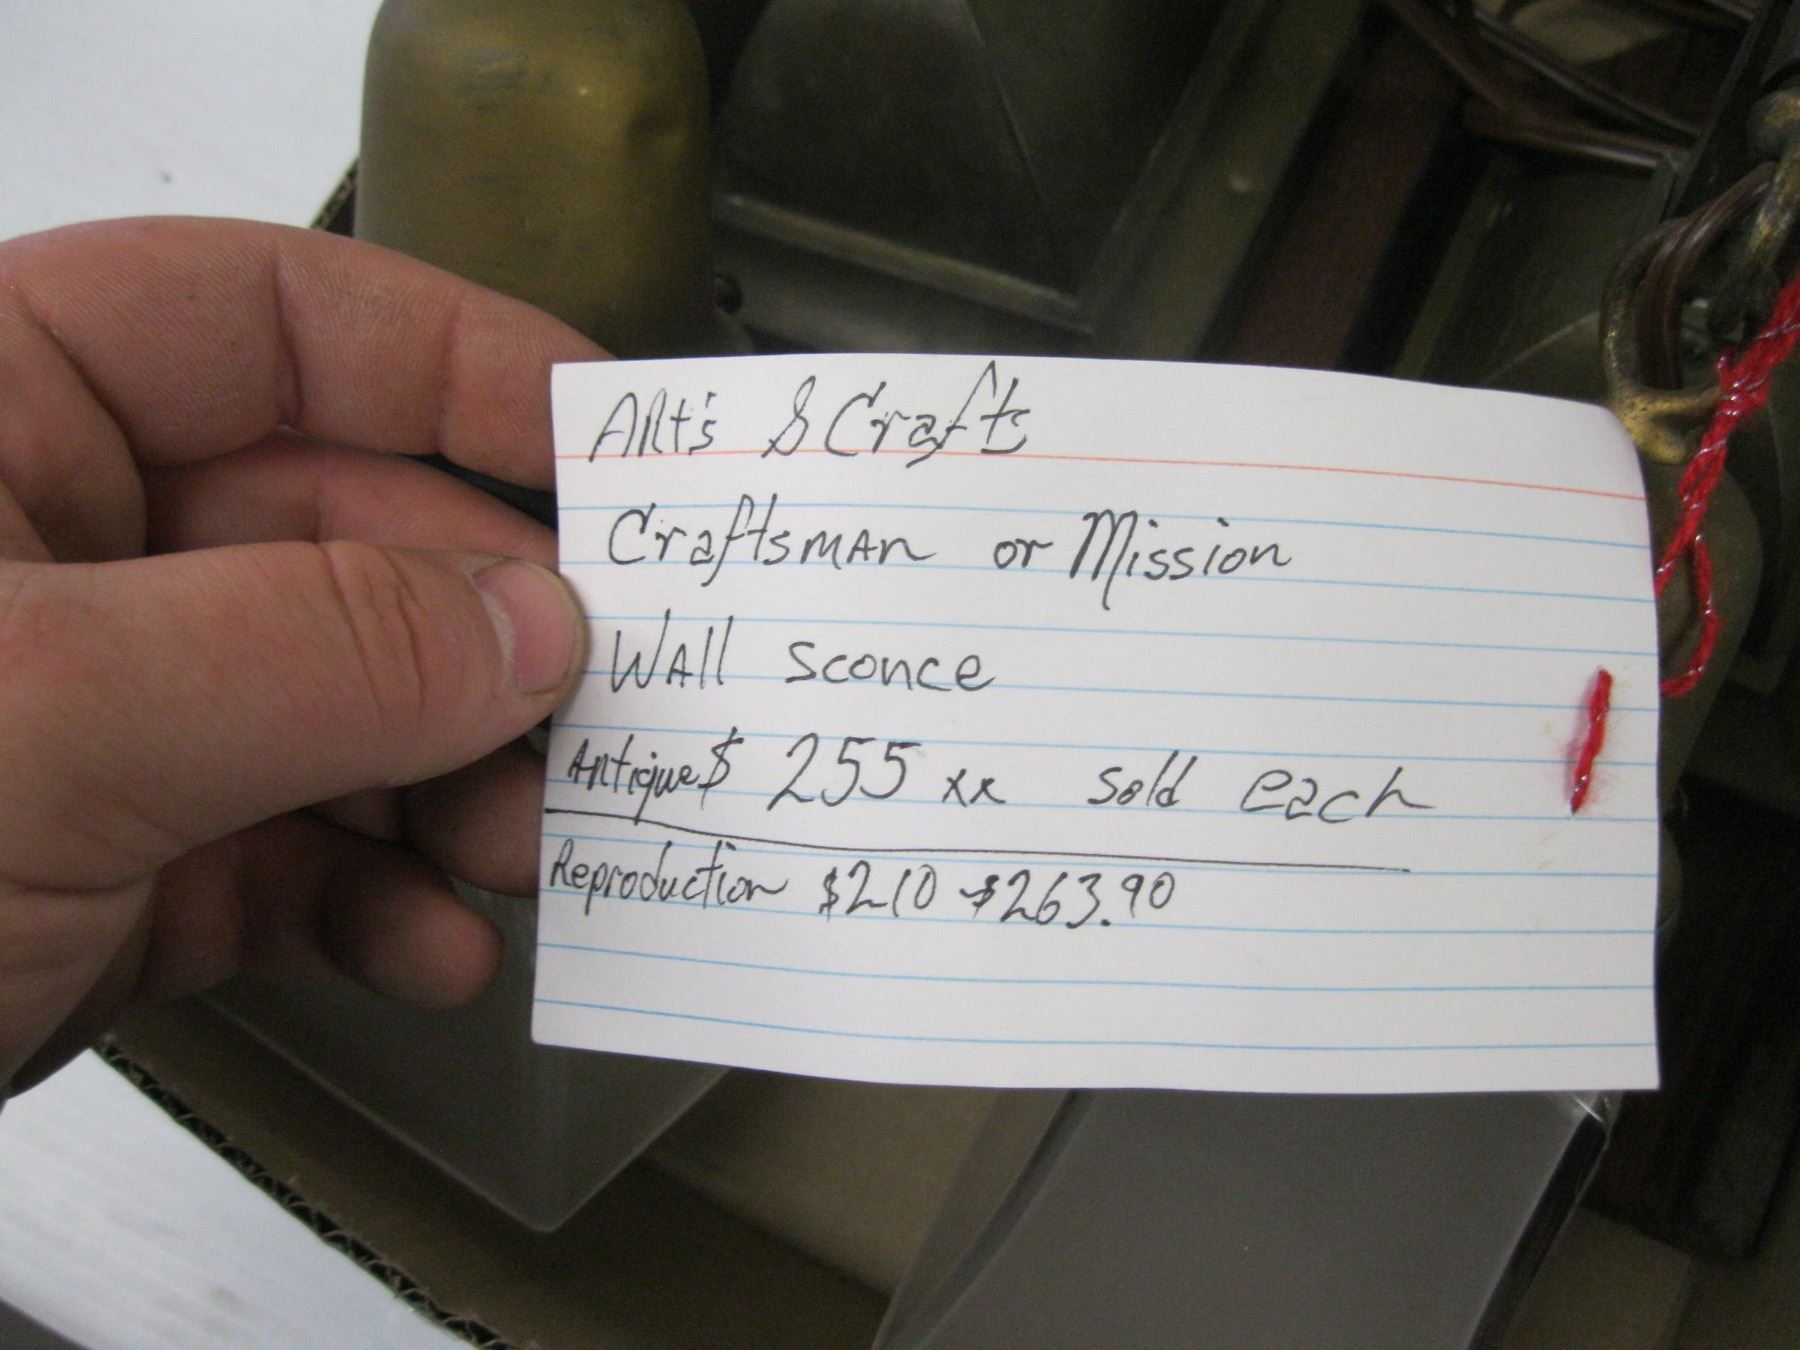 Art's & Crafts
Craftsman or Mission
Wall sconce
Antique $ 255 xx sold each
Reproduction $210 - $263.90